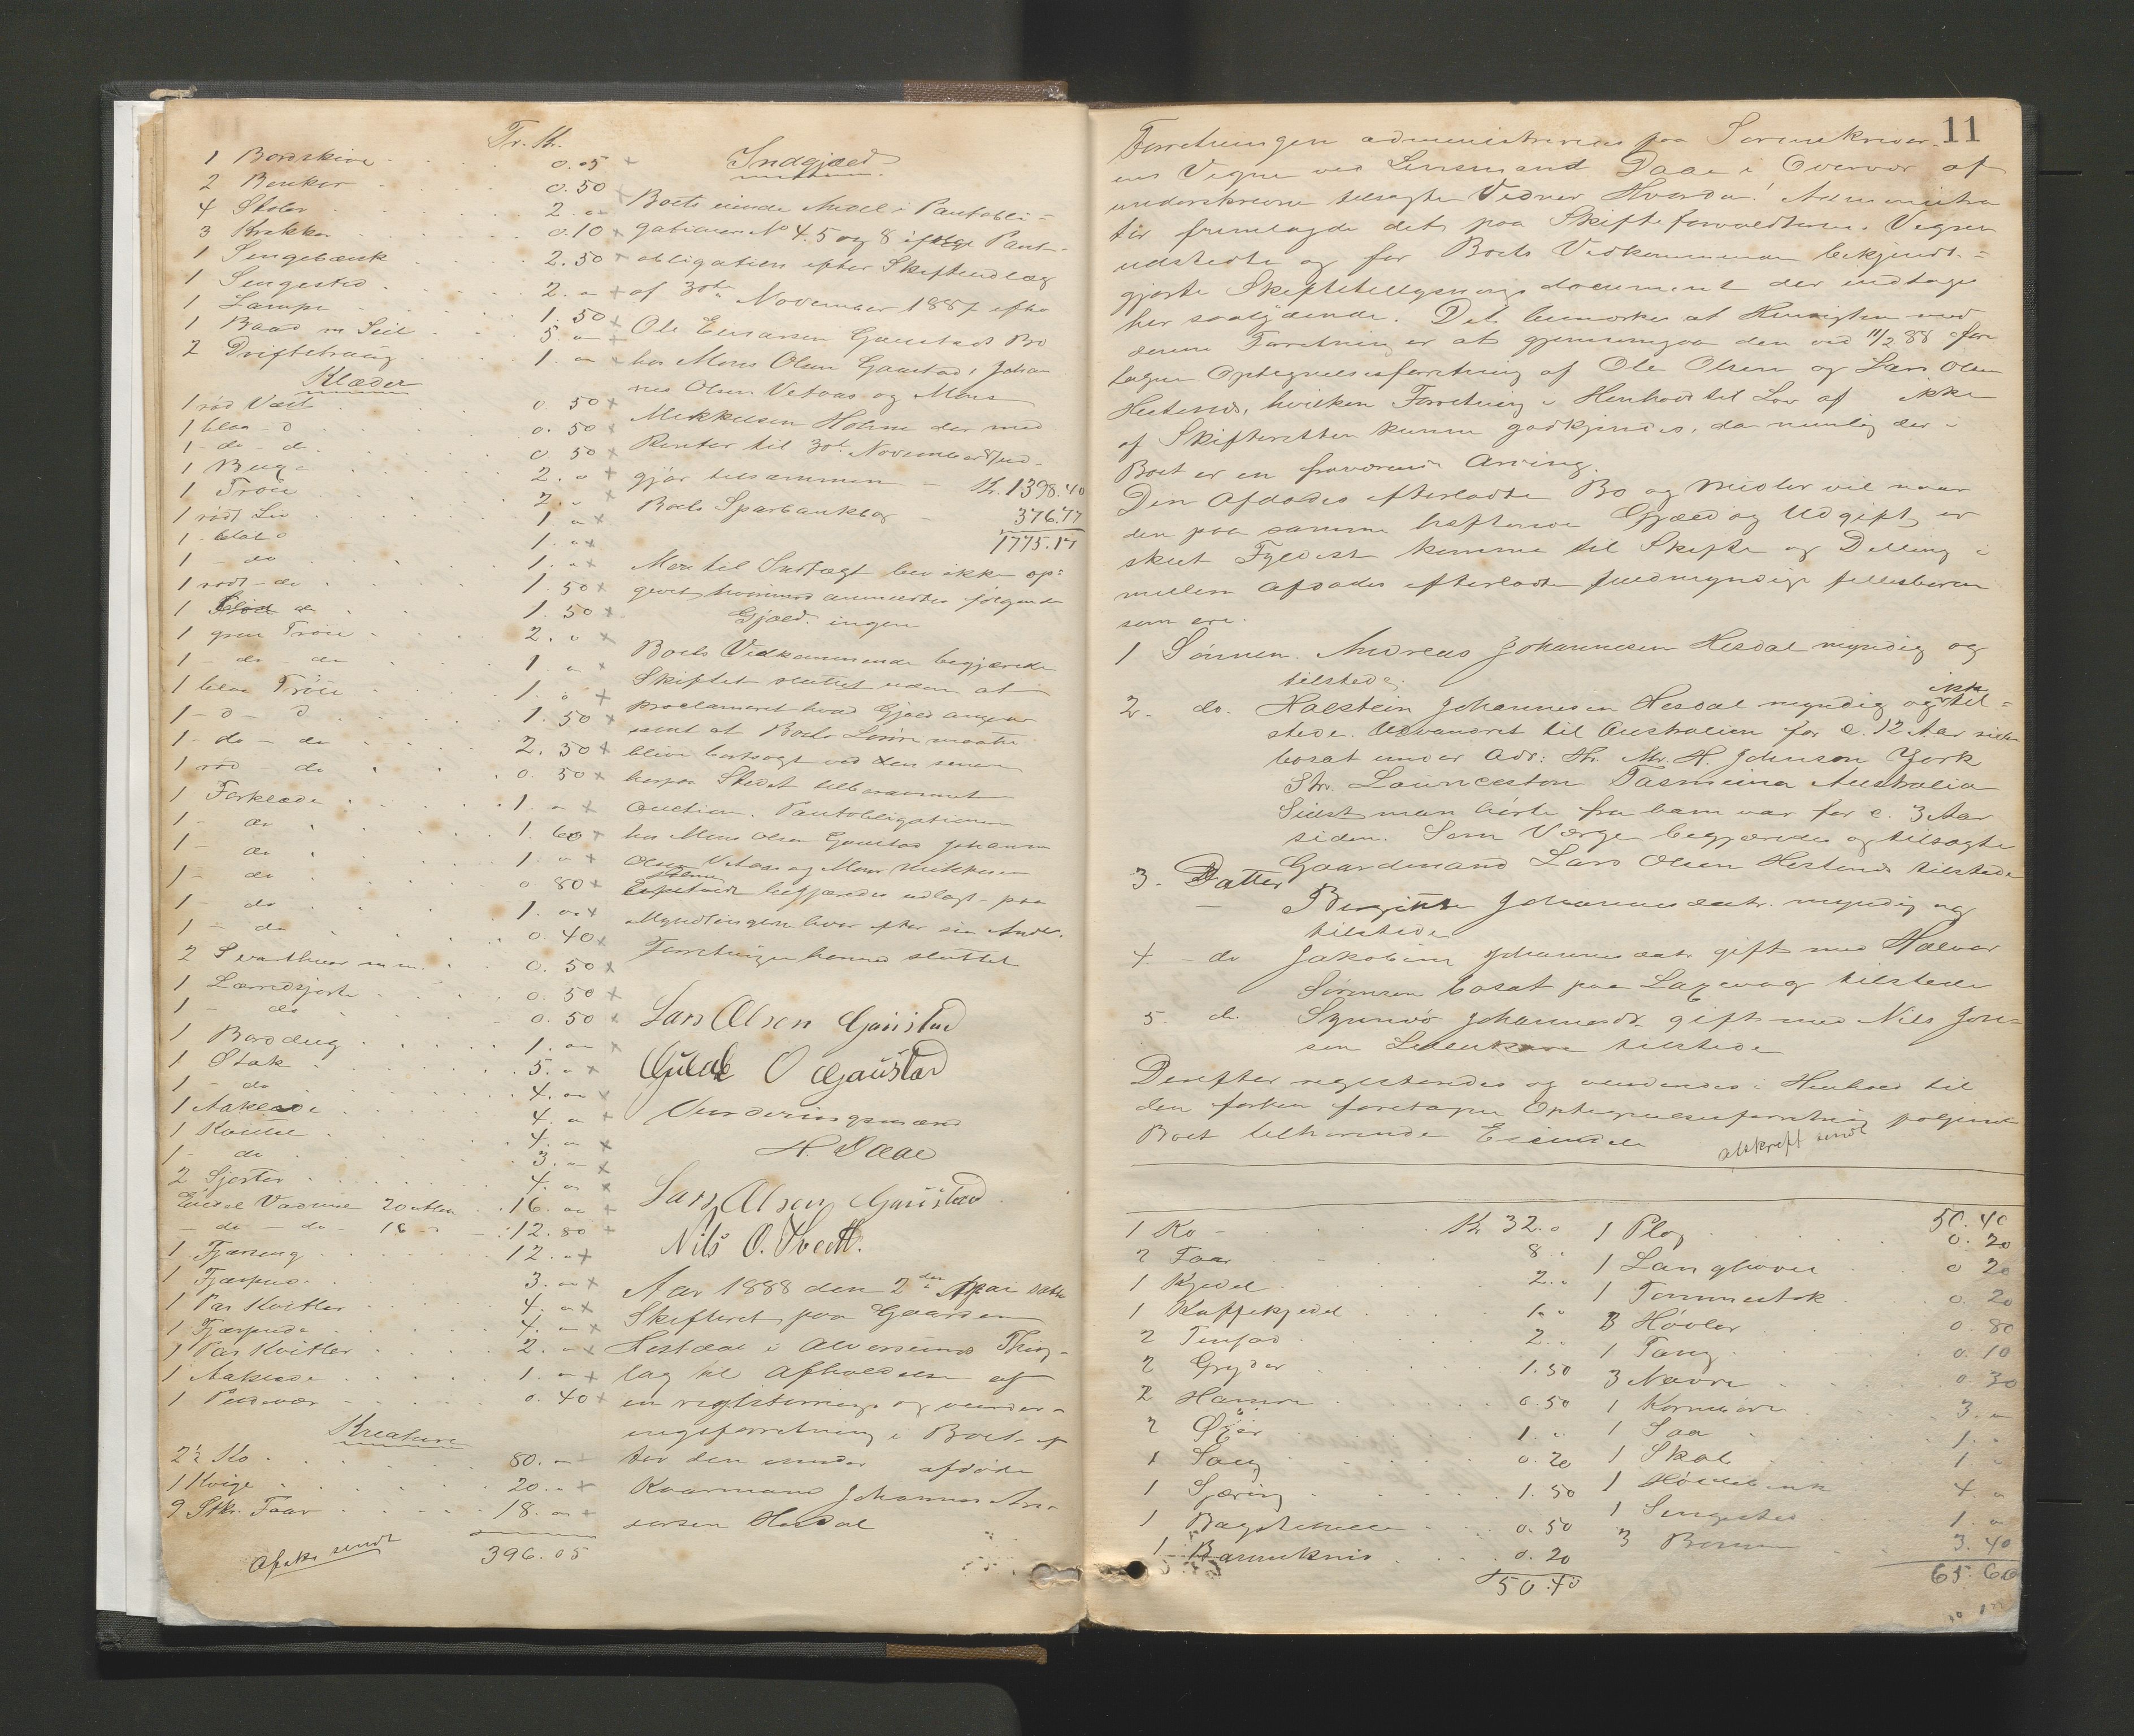 Tr. Kr.
1 Bordskive 0.05
2 Benker 0.50
4 Stoler 2. "
3 Krakker 0.10
1 Sengebænk 2.50
1 Sengested 2. "
1 Lampe 1.50
1 Baad m Seil 5 "
2 Driftetraug 1. "
Klæder
1 rød Væst 0.50
1 blaa - d 0.50
1 - do - d. 0.50
1 Buge 2. "
1 Trøie 2. "
1 rødt Liv 1. "
1 - blaat d 1. "
1 - do 1. "
1 rødt - do 1.50
1 do 1.50
1 grøn Trøie 2. "
1 - do - do 1. "
1 blaa Trøie 1. "
1 - d - d 1.50
1 - do - do 2.50
1 rød - do 0.50
1 Forklæde 1. "
1 - do 1.60
1 - do 1. "
1 - do 0 80
1 - do 1. "
1 - do 0.40
2 Sværthuer m m. 0.50
1 Lærredsjorte 0.50
1 - do 0.50
1 Borddug 1. "
1 Stak 5. "
1 - do 4. "
1 Aaklæde 4. "
1 Kvittel 4. "
1 - do 3. "
2 Sjorter 4. "
Endel Vadmel 20 Alen 16. "
- do - do - 16 12.80
1 Fjærseng 12. "
1 Fjærpude 3. "
1 Par Kvitler 4. "
1 Fjærpude 4. "
1 Par Kvitler 2. "
1 Aaklæde 1. "
1 Pudevær 0.40
Kreature
2½ Ko 80. "
1 Kvige 20. "
9 Stk. Faar 18. "
396.05
Afskr sendt
Indgjæld
Boets eiende Andel i Pantobli-
gationer No 4. 5 og 8 ifølge Pant-
obligation efter Skifteudlæg
af 30te November 1887 efter
Ole Einarsen Gaustads Bo
hos Mons Olsen Gaustad, Johan
nes Olsen Vetaas og Mons
Mikkelsen Holme der med
Renter til 30te November 87 ud-
gjør tilsammen - Kr. 1398.40
Boets Sparbankbog - 376.77
1775.17
Mere til Indtægt blev ikke op-
givet hvorimod anmeldtes følgende
Gjæld: ingen
Boets Vedkommende begjærede
Skiftet sluttet uden at
proclameret hvad Gjæld angaar
samt at Boets Løsøre maatte
blive bortsolgt ved den senere
herpaa Stedet tilberammet
Auction. Pantobligationen
hos Mons Olsen Gaustad Johannes
Olsen Vetaas og Mons Mikkelsen
Holme begjæredes udlagt paa
Myndlingerne hver efter sin Andel.
Forretningen hermed sluttet
Lars Olsen Gaustad
Gulak O Gaustad
Vurderingsmænd
H. Daae
Lars Olsen Gaustad
Nils O. Tvedt.
Aar 1888 den 2den Mai sattes
Skifteret paa Gaarden
Hesdal i Alversunds Thing-
lag til Afholdelse af
en registrerings og vurder-
ingsforretning i Boet ef-
ter den under afdøde
Kaarmand Johannes An-
dersen Hesdal
11
Forretningen administreredes paa Sorenskriver
ens Vegne ved Lensmand Daae i Overvær af
underskrevne tilsagte Vidner Hvorda! Administra
tor fremlagde det paa Skifteforvaltereus Vegner
udstedte og for Boets Vedkommende bekjendt-
gjorte Skiftetillysnings document der indtages
her saalydende. Det bemærkes at Hensigten med
denne Forretning er at gjennemgaa den ved 11/2 88 fore
tagne Optegnelsesforretning af Ole Olsen og Lars Olsen
Hestenes, hvilken Forretning i Henhold til Lov af ikke
af Skifteretten kunne godkjendes, da nemlig der i
Boet er en fraværende Arving.
Den Afdødes efterladte Bo og Midler vil naar
den paa samme hæftende Gjæld og Udgift er
skeet Fyldest komme til Skifte og Deling i
mellem Afdødes efterladte fuldmyndige fellesbørn
som ere.
1 Sønnen. Andreas Johannesen Hesdal myndig og
tilstede.
2. do. Halstein Johannesen Hesdal myndig og ikke til-
stede. Udvandret til Australien for c. 12 Aar siden
bosat under Adr: Hr. Mr. H. Johnson York
Str. Launceston Tasmeina Australia
Sidst man hørte fra ham var for c. 3 Aar
siden. Som Værge begjæredes og tilsagte
Gaardmand Lars Olsen Hestenes tilstede
3. Datter Bergitte Johannesdatr. myndig og
tilstede
4 - do Jakobine Johannesdatr gift med Halvor
Sørensen bosat paa Laxevaag tilstede
5. do. Synnøv Johannesdr. gift med Nils Jon-
sen tilstede
Derefter registreredes og vurderedes i Henhold til
den forhen foretagne Optegnelsesforretning følgende
Boet tilhørende Eiendele
afskrift sendt
1 Ko Kr 32. "
2 Faar 8 "
1 Kjedel 2. "
1 Kaffekjedel 1. "
2 Tinfad 2. "
2 Gryder 1.50
2 Hamre 0.50
2 Øxer 1. "
1 Saug 0.20
1 Sjæring 1.50
1 Bagstehelle 0.50
1 Barneknid 0.20
50.40
50.40
1 Plog 0.20
1 Langhøvel 0 20
1 Tommestok 0.20
3 Høvler 0.80
1 Tang 0.10
3 Navre 0.30
1 Kornbøre 3. "
1 Saa 1. "
1 Skab 1 "
1 Høvlebænk 4. "
1 Sengested 1. "
3 3.40
65.60